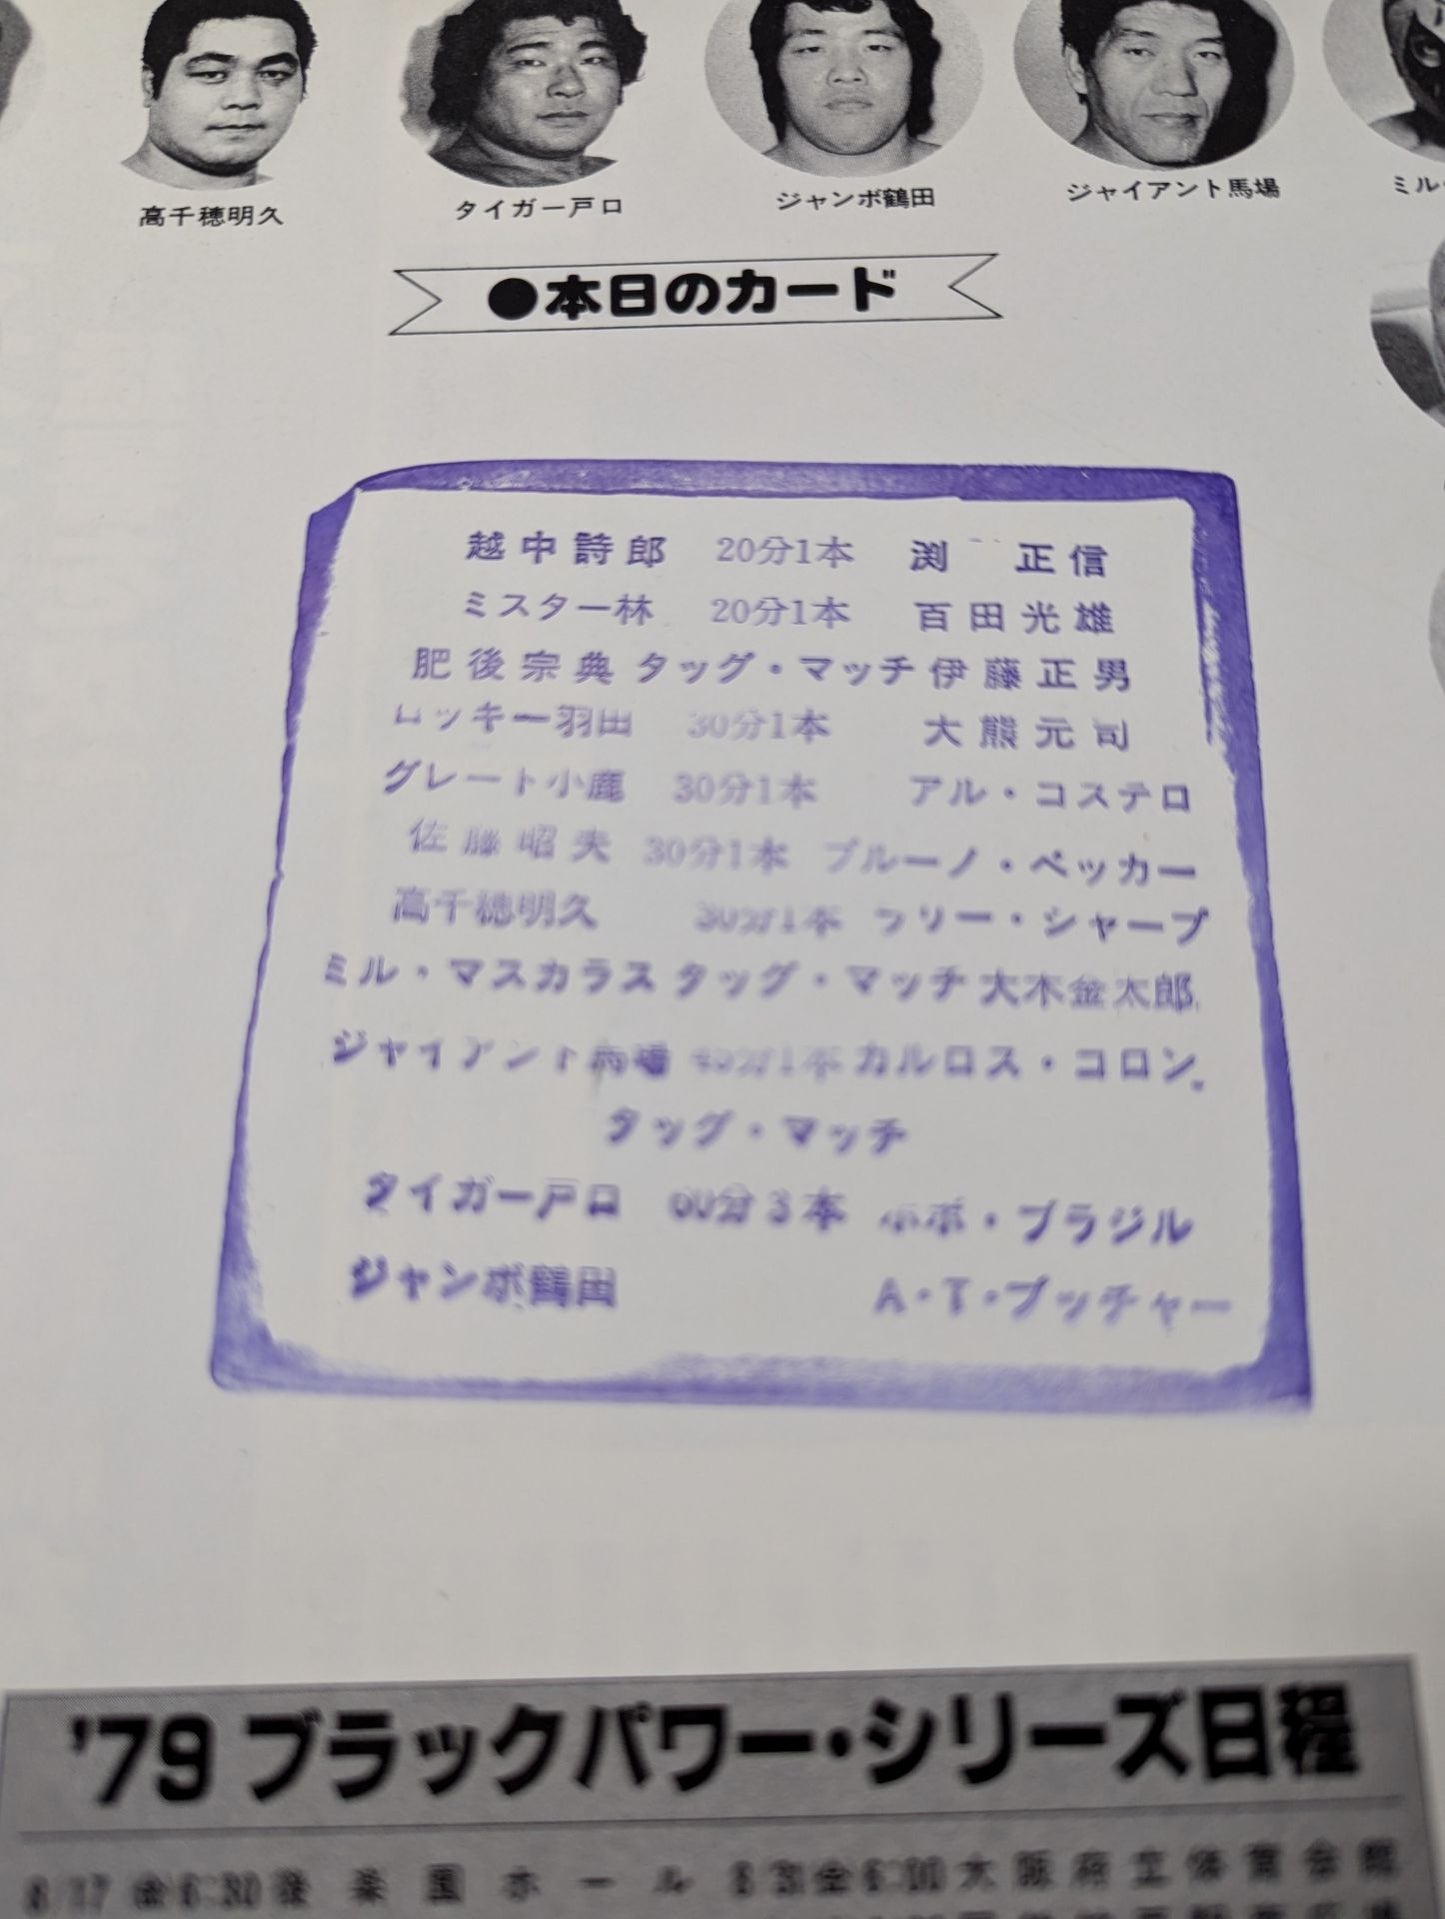 高千穂明久 タイガー戸口 ジャンボ鶴田 ジャイアント馬場 ミル
●本日のカード
越中詩郎 20分1本 渕 正信
ミスター林 20分1本 百田光雄
肥後宗典 タッグ・マッチ 伊藤正男
ロッキー羽田 30分1本 大熊元司
グレート小鹿 30分1本 アル・コステロ
佐藤昭夫 30分1本 ブルーノ・ベッカー
高千穂明久 30分1本 ラリー・シャープ
ミル・マスカラス タッグ・マッチ 大木金太郎
ジャイアント馬場 45分1本 カルロス・コロン
タッグ・マッチ
タイガー戸口 60分3本 ボボ・ブラジル
ジャンボ鶴田 A・T・ブッチャー
'79 ブラックパワー・シリーズ日程
8/17 金 6:30 後楽園ホール 8/31 金 6:00 大阪府立体育会館